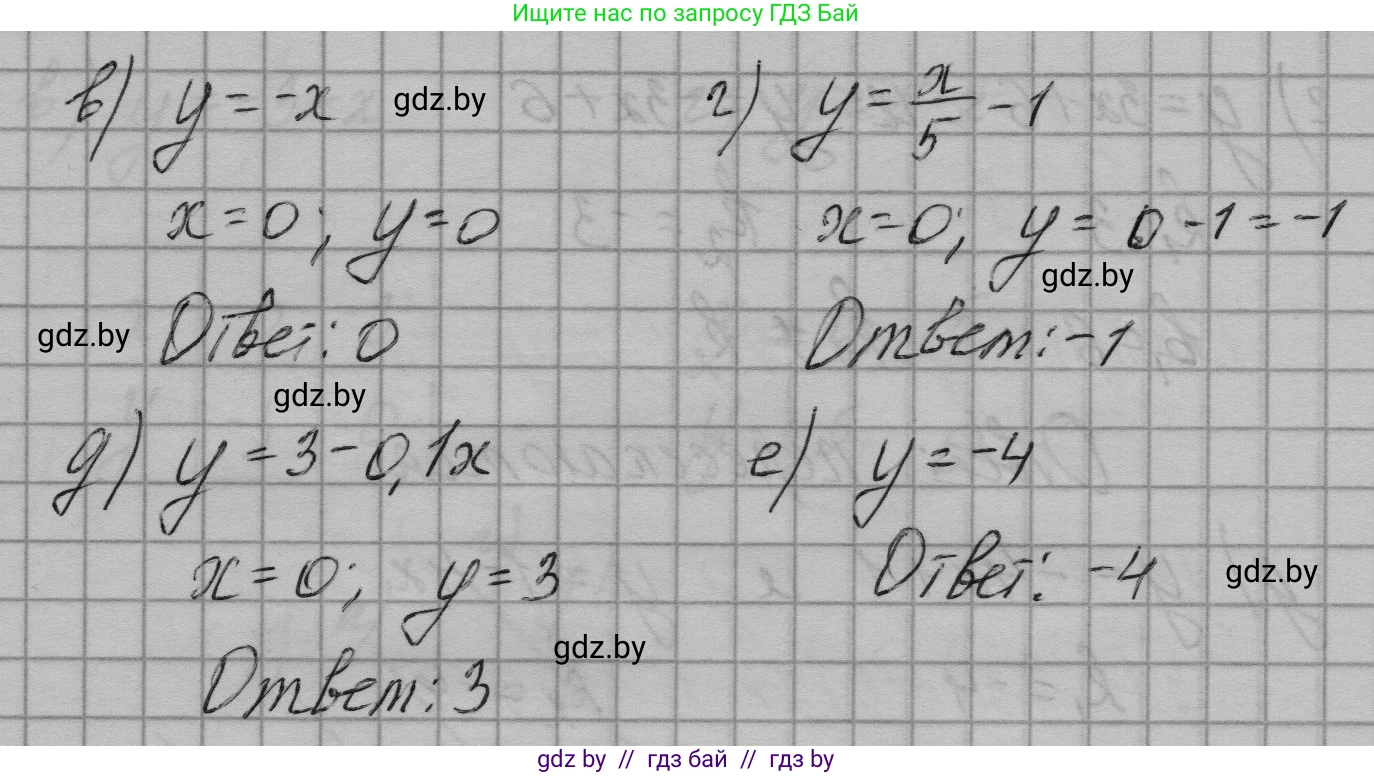 Ищите нас по запросу ГДЗ Бай
в) y = -x gdz.by
x = 0; y = 0
gdz.by Ответ: 0
gdz.by
г) y = x/5 - 1
x = 0; y = 0 - 1 = -1
gdz.by
Ответ: -1
д) y = 3 - 0,1x
x = 0; y = 3
gdz.by
Ответ: 3
е) y = -4
Ответ: -4 gdz.by
gdz by // гдз бай // gdz by